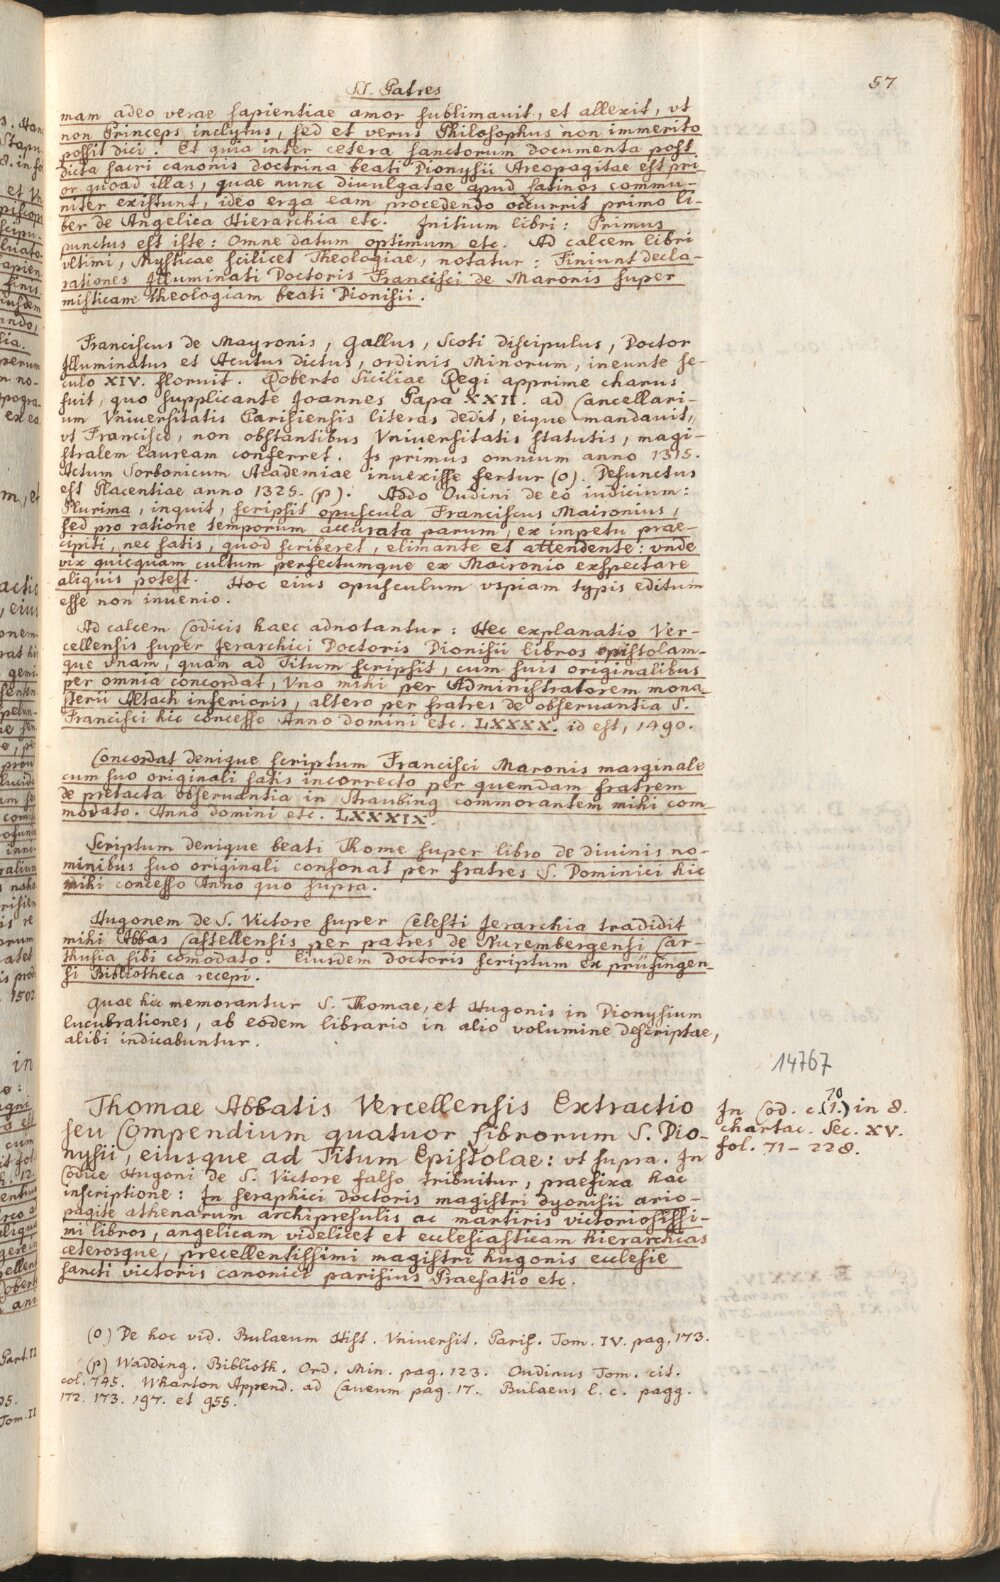 SS. Patres
57
mam adeo verae sapientiae amor sublimauit, et allexit, vt
non Princeps inclytus, sed et verus Philosophus non immerito
possit dici. Et quia inter cetera sanctorum documenta post
dicta sacri canonis doctrina beati Dionysii Areopagitae est pri-
or quoad illas, quae nunc diuulgatae apud latinos commu-
niter existunt, ideo erga eam procedendo occurrit primo li-
ber de Angelica Hierarchia etc. Initium libri: Primus
punctus est iste: Omne datum optimum etc. Ad calcem libri
vltimi, Mysticae scilicet Theologiae, notatur: Finiunt decla-
rationes Illuminati Doctoris Francisci de Maronis super
misticam theologiam beati Dionisii.
Franciscus de Mayronis, Gallus, Scoti discipulus, Doctor
Illuminatus et Acutus dictus, ordinis Minorum, ineunte se-
culo XIV. floruit. Roberto Siciliae Regi apprime charus
fuit, quo supplicante Joannes Papa XXII. ad Cancellari-
um Vniuersitatis Parisiensis literas dedit, eique mandauit,
vt Francisco, non obstantibus Vniuersitatis statutis, magi-
stralem lauream conferret. Is primus omnium anno 1315.
Actum Sorbonicum Academiae inuexisse fertur (o). Defunctus
est Placentiae anno 1325. (p). Addo Oudini de eo iudicium:
Plurima, inquit, scripsit opuscula Franciscus Maironius,
sed pro ratione temporum accurata parum, ex impetu prae-
cipiti, nec satis, quod scriberet, elimante et attendente: vnde
vix quicquam cultum perfectumque ex Maironio exspectare
aliquis potest. Hoc eius opusculum vspiam typis editum
esse non inuenio.
Ad calcem Codicis haec adnotantur: Hec explanatio Ver-
cellensis super Jerarchici Doctoris Dionisii libros epistolam-
que vnam, quam ad Titum scripsit, cum suis originalibus
per omnia concordat, Vno mihi per Administratorem mona-
sterii Altach inferioris, altero per fratres de obseruantia S.
Francisci hic concesso Anno domini etc. LXXXX. id est, 1490.
Concordat denique scriptum Francisci Maronis marginale
cum suo originali satis incorrecto per quemdam fratrem
de pretacta obseruantia in Straubing commorantem mihi com-
modato. Anno domini etc. LXXXIX.
Scriptum denique beati Thome super libro de diuinis no-
minibus suo originali consonat per fratres S. Dominici hic
mihi concesso Anno quo supra.
Hugonem de S. Victore super Celesti Jerarchia tradidit
mihi Abbas Castellensis per patres de Nurembergensi Car-
thusia sibi comodato. Eiusdem doctoris scriptum ex prüfingen-
si Bibliotheca recepi.
Quae hic memorantur S. Thomae, et Hugonis in Dionysium
lucubrationes, ab eodem librario in alio volumine descriptae,
alibi indicabuntur.
14767
Thomae Abbatis Vercellensis Extractio
seu Compendium quatuor librorum S. Dio-
nysii, eiusque ad Titum Epistolae: vt supra. In
Codice Hugoni de S. Victore falso tribuitur, praefixa hac
inscriptione: In seraphici doctoris magistri dyonisii ario-
pagite athenarum archipresulis ac martiris victoriosissi-
mi libros, angelicam videlicet et ecclesiasticam hierarchias
ceterosque, precellentissimi magistri hugonis ecclesie
sancti victoris canonici parisius Praefatio etc.
In Cod. c. (1.) in 8.
70
chartac. Sec. XV.
fol. 71-228.
(o) De hoc vid. Bulaeum Hist. Vniuersit. Paris. Tom. IV. pag. 173.
(p) Wadding. Biblioth. Ord. Min. pag. 123. Oudinus Tom. cit.
col. 745. Wharton Append. ad Caueum pag. 17. Bulaeus l. c. pagg.
172. 173. 197. et 955.